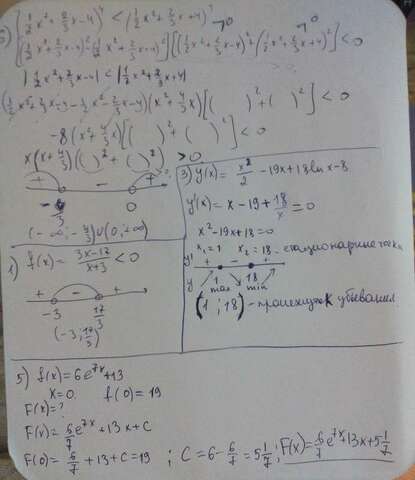 (1/2 x² + 2/3 x - 4)⁴ < (1/2 x² + 2/3 x + 4)⁴
[(1/2 x² + 2/3 x - 4)² - (1/2 x² + 2/3 x + 4)²] [(1/2 x² + 2/3 x - 4)² + (1/2 x² + 2/3 x + 4)²] < 0
|1/2 x² + 2/3 x - 4| < |1/2 x² + 2/3 x + 4|
(1/2 x² + 2/3 x - 4 - 1/2 x² - 2/3 x - 4)(x² + 4/3 x)[( )² + ( )²] < 0
-8(x² + 4/3 x)[( )² + ( )²] < 0
x(x + 4/3)(( )² + ( )²) > 0
+ - +
-4/3 0
(-∞; -4/3) ∪ (0; +∞)
1) f(x) = 3x-17/x+3 < 0
+ - +
-3 17/3
(-3; 17/3)
3) y(x) = x²/2 - 19x + 18 ln x - 8
y'(x) = x - 19 + 18/x = 0
x² - 19x + 18 = 0
x₁ = 1 x₂ = 18 - стационарные точки
y' + - +
y 1 18
max min
(1; 18) - промежуток убывания
5) f(x) = 6e^7x + 13
x = 0 f(0) = 19
F(x) = ?
F(x) = 6/7 e^7x + 13x + C
F(0) = 6/7 + 13 + C = 19 ; C = 6 - 6/7 = 5 1/7 ; F(x) = 6/7 e^7x + 13x + 5 1/7